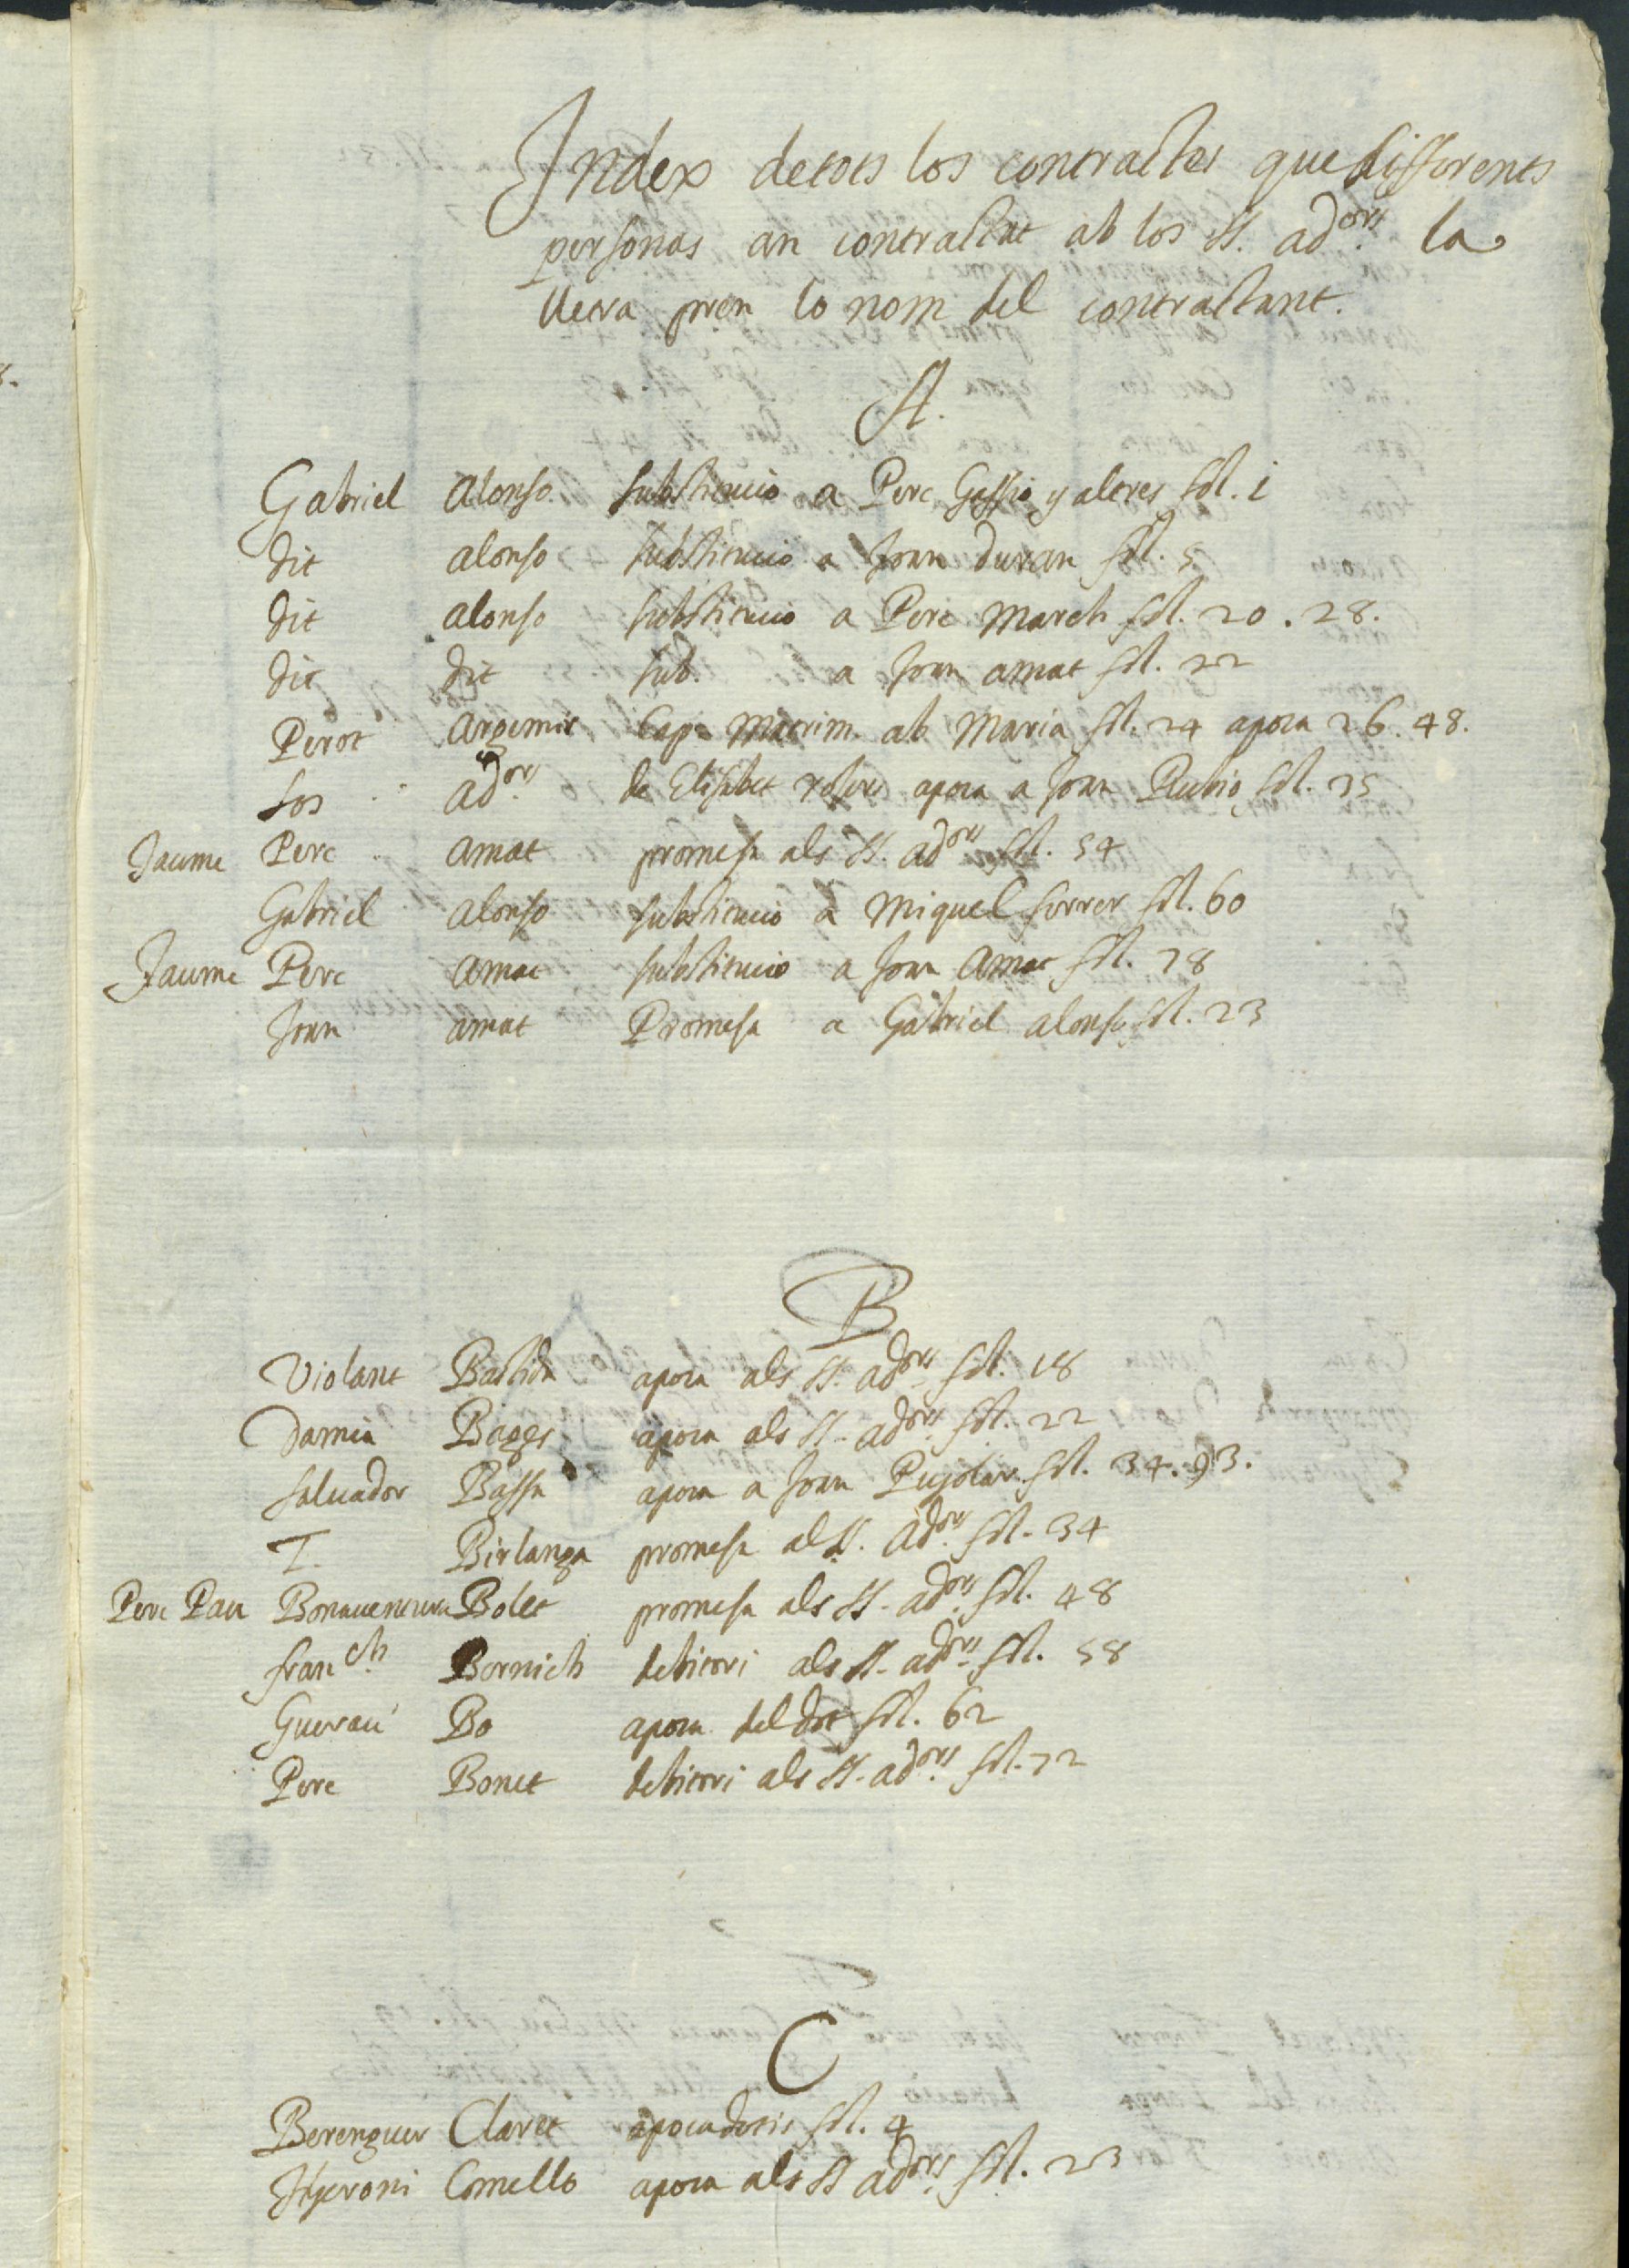 Index de tots los contractes que differents
personas an contractat ab los SS. ad.ors la
lletra pren lo nom del contractant.
A.
Gabriel Alonso substitucio a Pere Gassio y altres fol. i
dit alonso substitucio a Joan duran fol. 5
dit alonso substitucio a Pere March fol. 20. 28.
dit dit sub. a Joan amat fol. 22
Perot Argemir Cap. Matrim. ab Maria fol. 24 apoca 26. 48.
los ad.ors de Elisabet apoca a Joan Rubio fol. 35
Jaume Pere Amat promesa als SS. ad.ors fol. 54
Gabriel Alonso substitucio a Miquel ferrer fol. 60
Jaume Pere Amat substitucio a Joan Amat fol. 78
Joan amat Promesa a Gabriel alonso fol. 23
B
Violant Bastida apoca als SS. ad.ors fol. 18
Damia Bages apoca als SS. ad.ors fol. 22
Saluador Bassa apoca a Joan Pujolar fol. 34. 93.
T. Birlanga promesa als SS. ad.ors fol. 34
Pere Pau Bonauentura Bolet promesa als SS. ad.ors fol. 48
fran.ch Bornich debitori als SS. ad.ors fol. 58
Guerau Bo apoca del dot fol. 62
Pere Bonet debitori als SS. ad.ors fol. 72
C
Berenguer Claret apoca dotis fol. 4
Hyeroni Comello apoca als SS ad.ors fol. 23